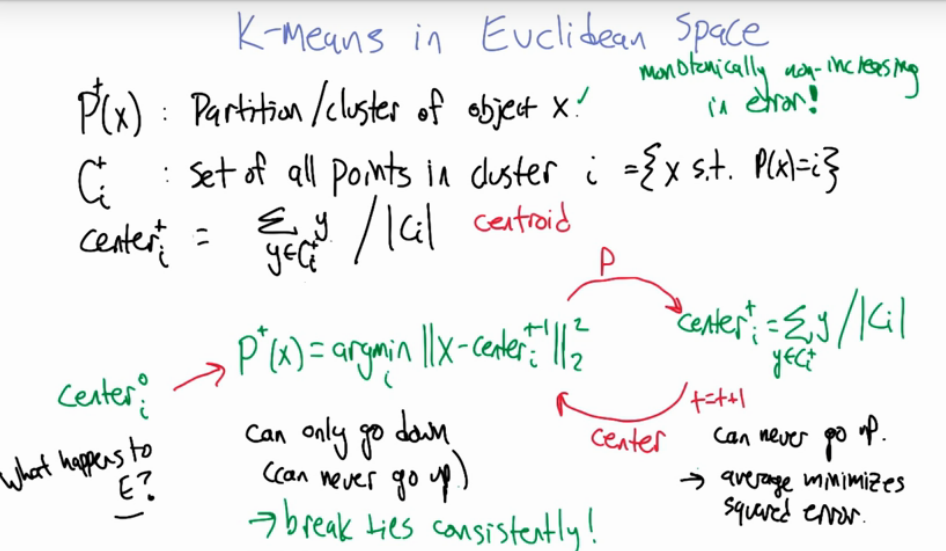 K-Means in Euclidean Space
monotonically non-increasing
in error!
Pᵗ(x) : Partition/cluster of object x ✓
Cᵢᵗ : set of all points in cluster i = {x s.t. P(x)=i}
centerᵢᵗ = Σ_{y∈Cᵢᵗ} y / |Cᵢ| centroid
P
Pᵗ(x) = argminᵢ ||x - centerᵢᵗ⁻¹||₂²
centerᵢᵗ = Σ_{y∈Cᵢᵗ} y / |Cᵢ|
centerᵢ⁰ →
t=t+1
center
What happens to
E?
can only go down
(can never go up)
→ break ties consistently!
can never go up.
→ average minimizes
squared error.